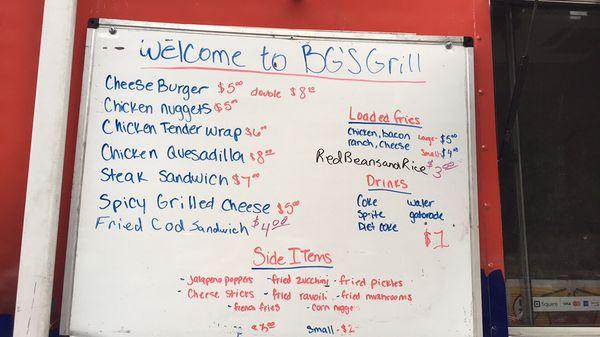 Welcome to BG'S Grill
Cheese Burger $5⁰⁰ double $8⁰⁰
Chicken nuggets $5⁰⁰
Chicken Tender Wrap $6⁰⁰
Chicken Quesadilla $8⁰⁰
Steak Sandwich $7⁰⁰
Spicy Grilled Cheese $5⁰⁰
Fried Cod Sandwich $4⁰⁰
Loaded fries
Chicken, bacon Large- $5⁰⁰
ranch, cheese Small $4⁰⁰
Red Beans and Rice $3⁰⁰
Drinks
Coke water
Sprite gatorade
Diet coke
$1
Side Items
- Jalapeno poppers - fried zucchini - fried pickles
- Cheese sticks - fried ravioli - fried mushrooms
- french fries - corn nuggets
Small - $2
Square VISA